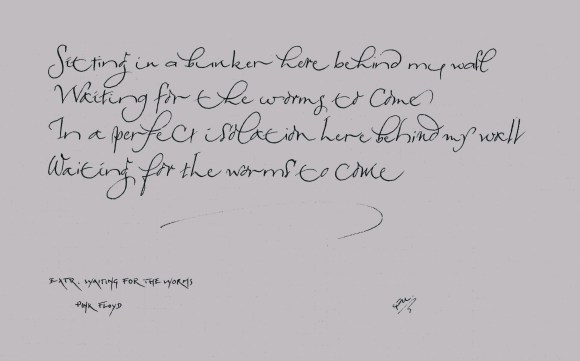 Sitting in a bunker here behind my wall
Waiting for the worms to come
In a perfect isolation here behind my wall
Waiting for the worms to come
EXTR. WAITING FOR THE WORMS
PINK FLOYD